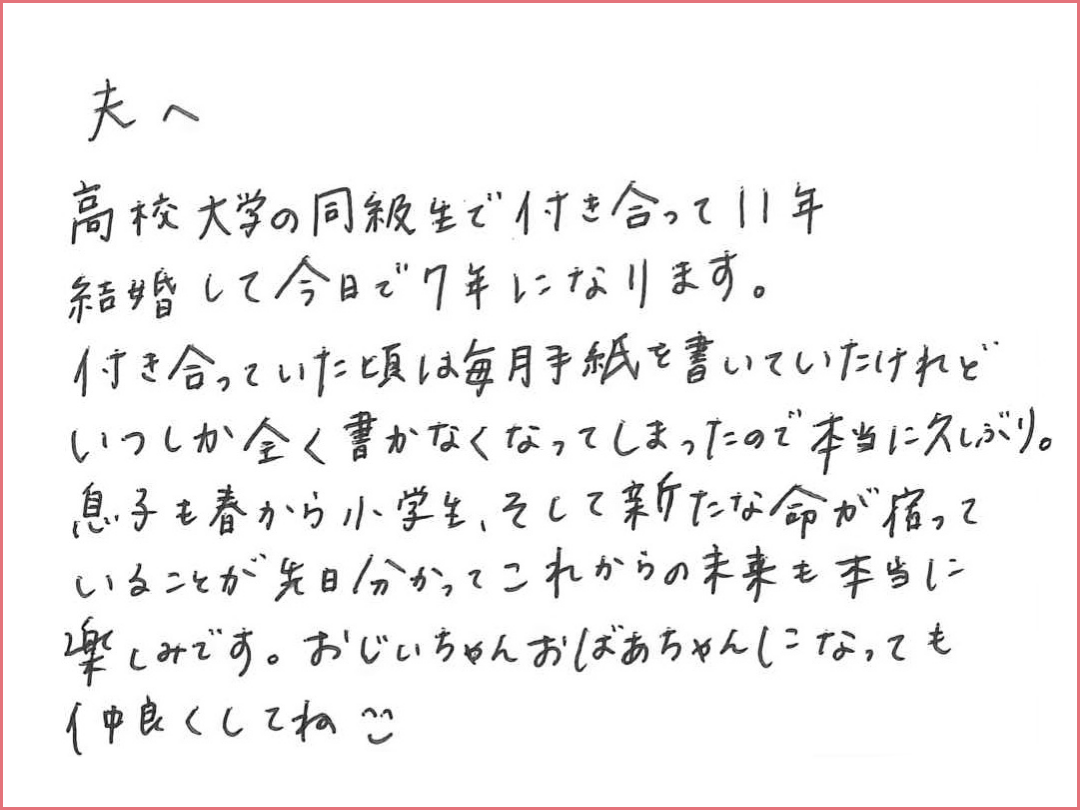 夫へ
高校大学の同級生で付き合って11年
結婚して今日で7年になります。
付き合っていた頃は毎月手紙を書いていたけれど
いつしか全く書かなくなってしまったので本当に久しぶり。
息子も春から小学生、そして新たな命が宿って
いることが先日分かってこれからの未来も本当に
楽しみです。おじいちゃんおばあちゃんになっても
仲良くしてね